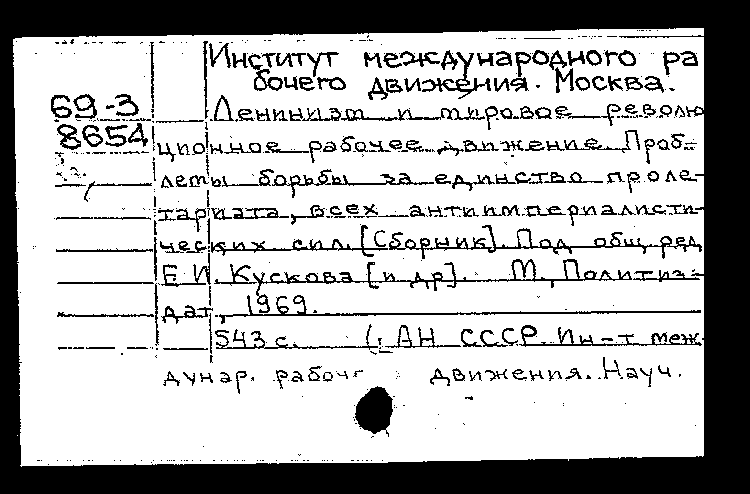 Институт международного ра
бочего движения. Москва.
69-3
8654
Ленинизм и мировое револю
ционное рабочее движение. Проб-
лемы борьбы за единство проле-
тариата, всех антиимпериалисти-
ческих сил. [Сборник]. Под общ. ред
Е. И. Кускова [и др]. М., Политиз-
дат, 1969.
543 с. (АН СССР. Ин-т меж-
дунар. рабоч движения. Науч.